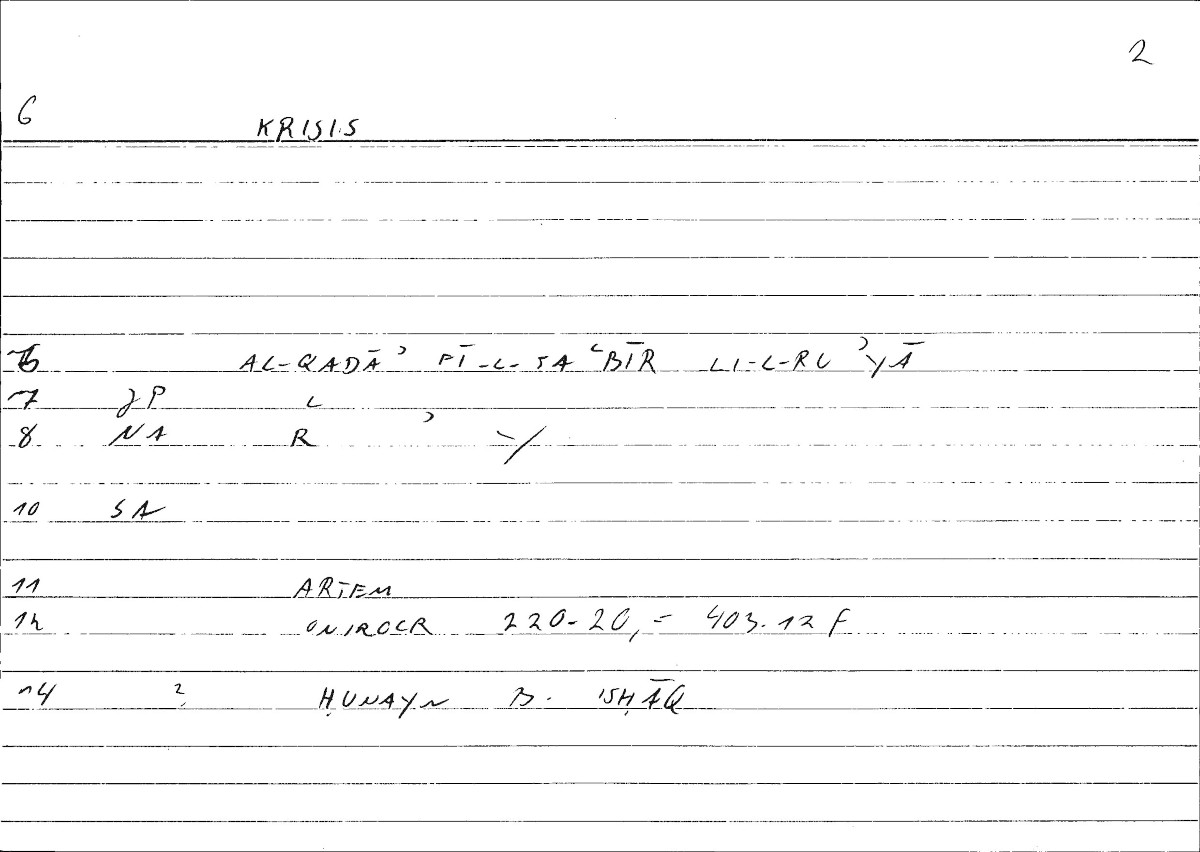 2
6 KRISIS
6 AL-QADĀʾ FĪ-L-TAʿBĪR LI-L-RUʾYĀ
7 JP L
8 NA R ʾ -/
10 SA
11 ARTEM
12 ONIROCR 220-20,= 403.12 F
14 ? ḤUNAYN B. ISḤĀQ